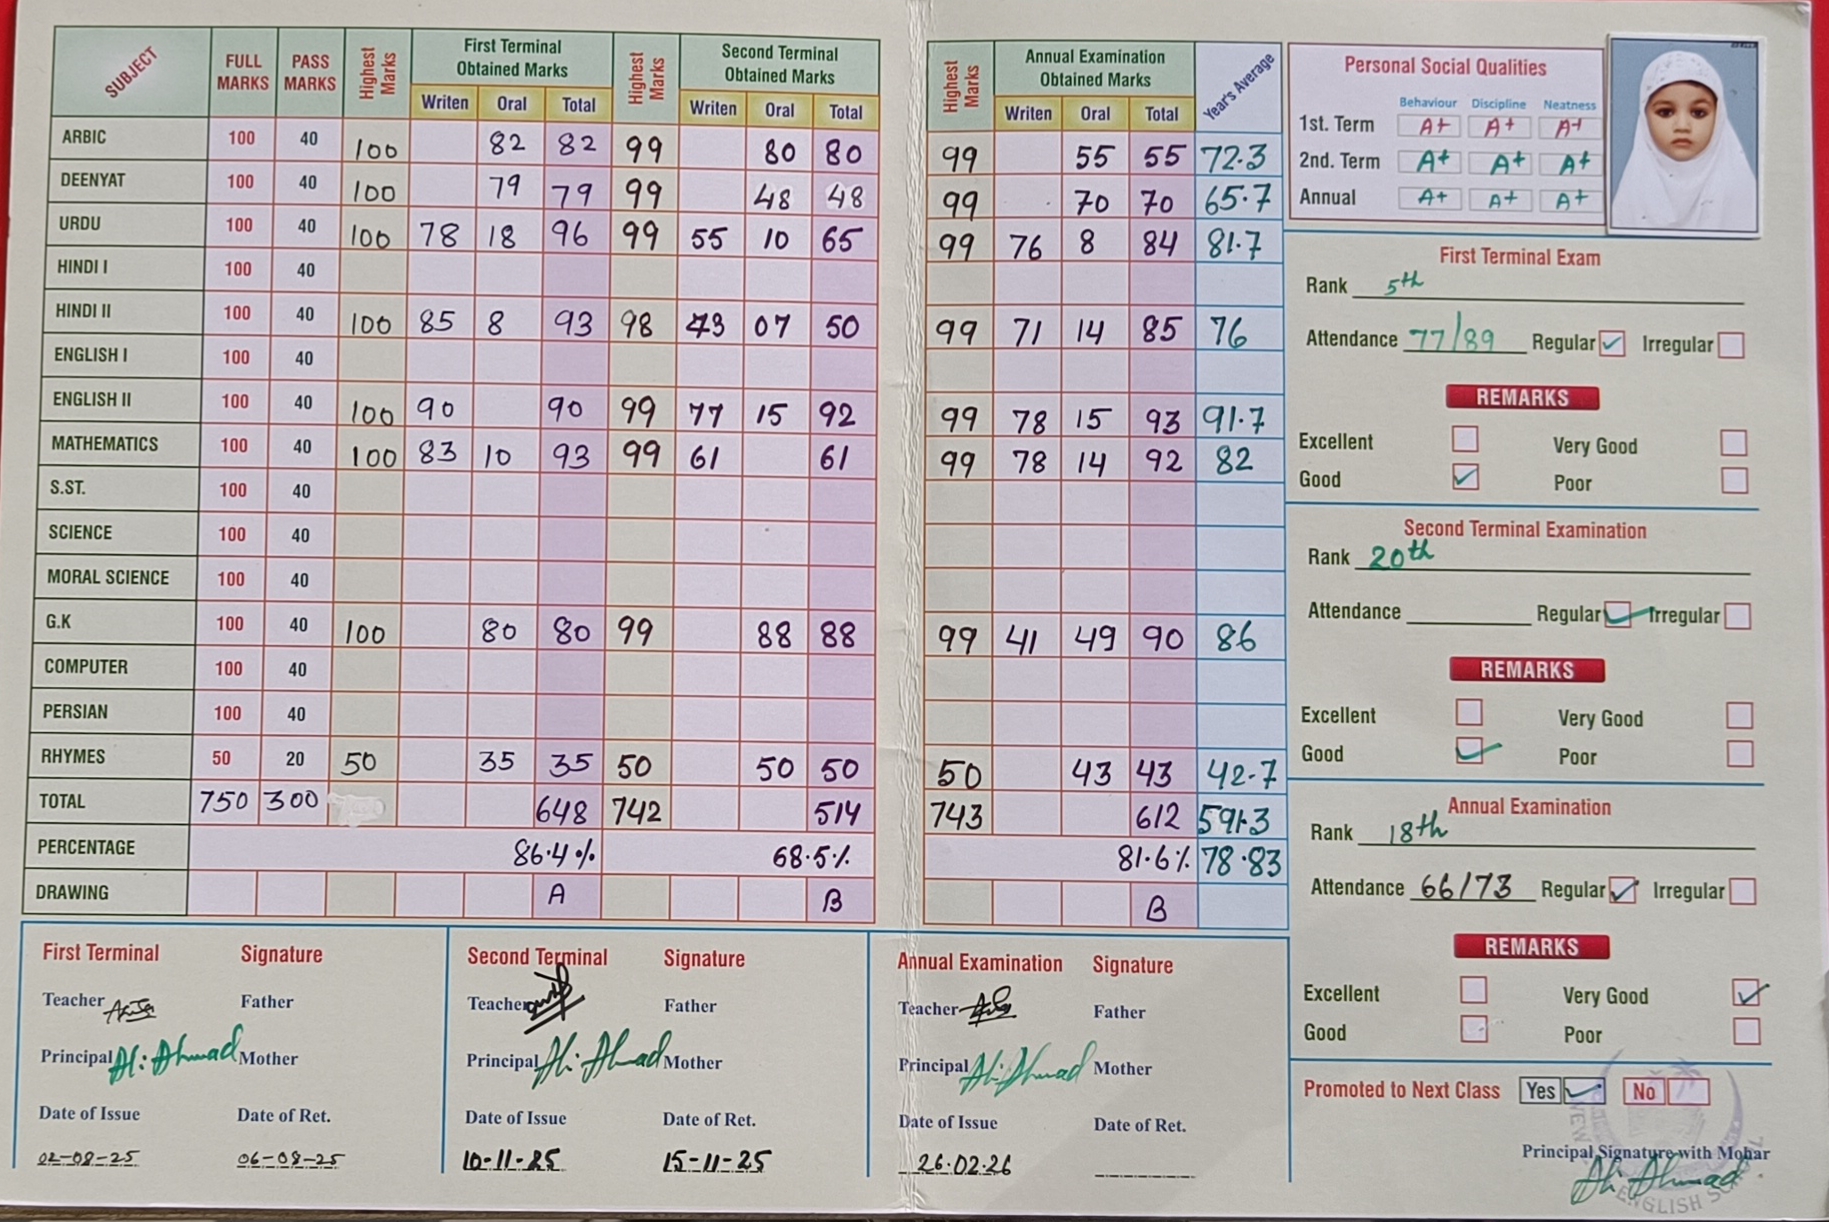 SUBJECT FULL MARKS PASS MARKS Highest Marks First Terminal Obtained Marks Writen Oral Total Highest Marks Second Terminal Obtained Marks Writen Oral Total Highest Marks Annual Examination Obtained Marks Writen Oral Total Year's Average
ARBIC 100 40 100 82 82 99 80 80 99 55 55 72.3
DEENYAT 100 40 100 79 79 99 48 48 99 70 70 65.7
URDU 100 40 100 78 18 96 99 55 10 65 99 76 8 84 81.7
HINDI I 100 40
HINDI II 100 40 100 85 8 93 98 43 07 50 99 71 14 85 76
ENGLISH I 100 40
ENGLISH II 100 40 100 90 90 99 77 15 92 99 78 15 93 91.7
MATHEMATICS 100 40 100 83 10 93 99 61 61 99 78 14 92 82
S.ST. 100 40
SCIENCE 100 40
MORAL SCIENCE 100 40
G.K 100 40 100 80 80 99 88 88 99 41 49 90 86
COMPUTER 100 40
PERSIAN 100 40
RHYMES 50 20 50 35 35 50 50 50 50 43 43 42.7
TOTAL 750 300 648 742 514 743 612 591.3
PERCENTAGE 86.4% 68.5% 81.6% 78.83
DRAWING A B B
Personal Social Qualities
Behaviour Discipline Neatness
1st. Term A+ A+ A+
2nd. Term A+ A+ A+
Annual A+ A+ A+
First Terminal Exam
Rank 5th
Attendance 77/89 Regular Irregular
REMARKS
Excellent Very Good
Good Poor
Second Terminal Examination
Rank 20th
Attendance Regular Irregular
REMARKS
Excellent Very Good
Good Poor
Annual Examination
Rank 18th
Attendance 66/73 Regular Irregular
REMARKS
Excellent Very Good
Good Poor
Promoted to Next Class Yes No
Principal Signature with Mohar
Ali Ahmad
NEW
ENGLISH
First Terminal Signature
Teacher Father
Principal Ali Ahmad Mother
Date of Issue Date of Ret.
02-08-25 06-08-25
Second Terminal Signature
Teacher Father
Principal Ali Ahmad Mother
Date of Issue Date of Ret.
10-11-25 15-11-25
Annual Examination Signature
Teacher Father
Principal Ali Ahmad Mother
Date of Issue Date of Ret.
26.02.26